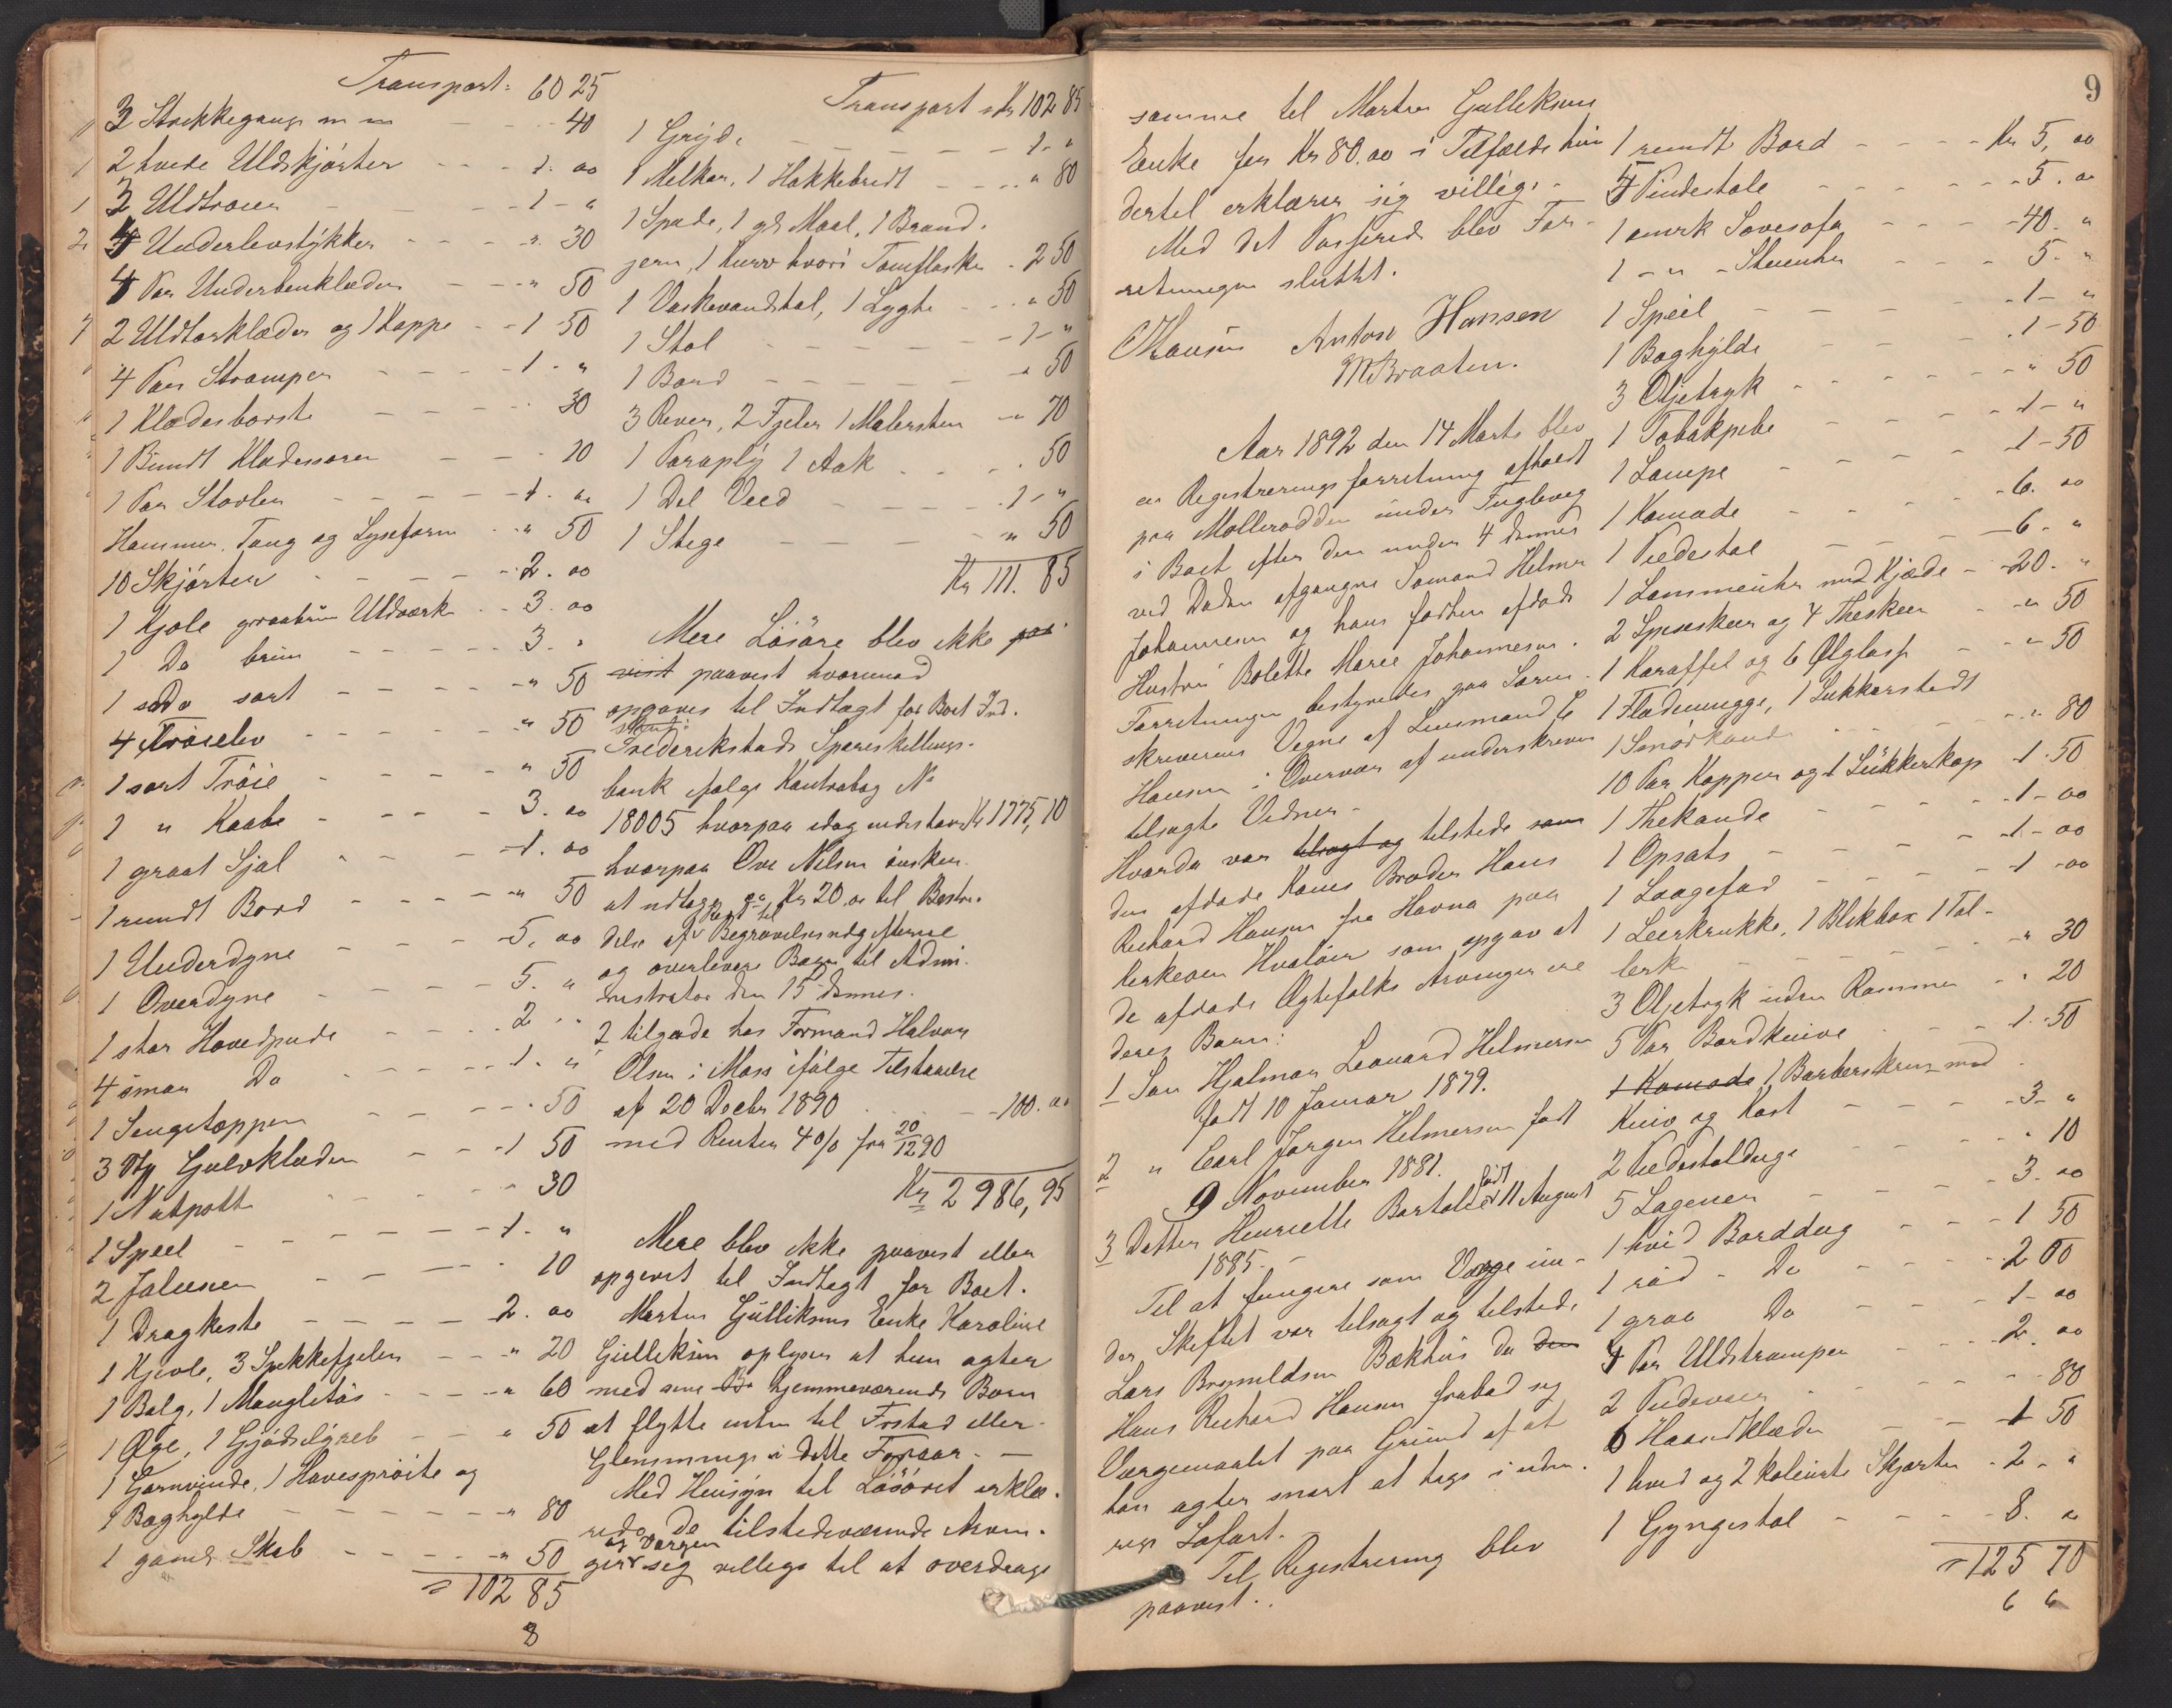 Transport: 60 25
3 Strikkegangs m m - - 40
2 hvide Uldskjörter - - 1. 00
3 Uldtröier - - 1 - "
4 Underlivstykker - - " 30
4 Par Underbenklæder - - " 50
2 Uldtørklæder og 1 Kappe - - 1 50
4 Par Strømper - - 1. "
1 Klædesbørste - - 30
1 Bundt Klædessnorer - - 20
1 Par Støvler - - 1. 00
Hammer, Tang og Lyseform - - " 50
10 Skjörter - - 2. 00
1 Kjole graabrun Uldværk - - 3. 00
1 Do brun - - 3. "
1 Do sort - - " 50
4 Tröieliv - - " 50
1 sort Tröie - - " 50
1 " Kaabe - - 3. 00
1 graat Sjal - - 1. 00
1 rundt Bord - - " 50
1 Underdyne - - 5. 00
1 Overdyne - - 5. "
1 stor Hovedpude - - 2 "
4 smaa Do - - 1. "
1 Sengetæppe - - 50
3 Gulvklæder - - 1 50
1 Natpotte - - 30
1 Speil - - 1. "
2 Jalusier - - 20
1 Dragkiste - - 2. 00
1 Kjevle, 3 Spekkefjeler - - " 20
1 Balg, 1 Mangletøs - - " 60
1 Øxe, 1 Gjödselgreb - - " 50
1 Garnvinde, 1 Havesprøite og
1 Boghylde - - " 80
1 gamlt Skab - - " 50
= 102 85
8
Transport Kr 102 85
1 Gryde - - 1 - "
1 Melkar, 1 Hakkebredt - - " 80
1 Spade, 1 gl Maal, 1 Brand-
jern, 1 kurv hvori Tomflasker - 2 50
1 Vaskevandstøl, 1 Lygte - - " 50
1 Stol - - 1 - "
1 Bord - - " 50
3 River, 2 Fjeler 1 Malersten - " 70
1 Paraply 1 Aak - - 50
1 Del Veed - - 1 - "
1 Stege - - " 50
Kr 111. 85
Mere Lösöre blev ikke paa-
vist paavist hvorimod
opgaves til Indtægt for Boet Ind-
skud i
Frederikstads Spareskillings-
bank ifølge Kontrabog No
18005 hvorpaa idag indestaar Kr 1775,10
hvorpaa Ove Nilsen ønsker
at udtage ca Kr 20.00 til Bestri-
delse af Begravelsesudgifterne
og overlevere Bogen til Admi-
nistrator den 15 dennes.
2 tilgode hos Formand Halvor
Olsen i Moss ifølge Tilstaaelse
af 20 Decbr 1890 - - 100. 00
med Renter 4 % fra 20/12 90
Kr 2 986,95
Mere blev ikke paavist eller
opgivet til Indtægt for Boet.
Martin Gulliksens Enke Karoline
Gulliksen oplyser at hun agter
med sine hjemmeværende Børn
at flytte inden til Frstad eller
Glemminge i dette Foraar. —
Med Hensyn til Lösöret erklæ-
rede de tilstedeværende Arvin-
og Værgen
ger sig villige til at overdrage
9
samme til Martin Gulliksens
Enke for Kr 80.00 i Tilfælde hun
dertil erklærer sig villig. -
Med det Passerede blev For-
retningen sluttet.
CHansen Anton Hansen
M Braaten.
Aar 1892 den 14 Marts blev
en Registreringsforretning afholdt
paa Mollerodden under Fuglevig
i Boet efter den under 4 dennes
ved Døden afgangne Sømand Helmer
Johannesen og hans forhen afdøde
Hustru Bolette Marie Johannesen.
Forretningen bestyredes paa Soren-
skriverens Vegne af Lensmand C
Hansen i Overvær af underskrevne
tilsagte Vidner. -
Hvorda var tilsagt og tilstede som
den afdøde Kones Broder Hans
Richard Hansen fra Havna paa
Kirkeøen Hvaløer som opgav at
de afdøde Ægtefolks Arvinger ere
deres Børn:
1 Søn Hjalmar Leonard Helmersen
født 10 Januar 1879.
2 " Carl Jørgen Helmersen født
9 November 1881.
født
3 Datter Henriette Bartolie 11 August
1885. -
Til at fungere som Værge un-
der Skiftet var tilsagt og tilstede
Lars Brynildsen Bækhus da den
Hans Richard Hansen frabad sig
Værgemaalet paa Grund af at
han agter snart at tage i uden-
rigs Søfart. -
Til Registrering blev
paavist:
1 rundt Bord - - Kr 5, 00
5 Pindestole - - 5. 00
1 smrk Sovesofa - - 40. "
1 - " - Stueuhr - - 5. "
1 Speil - - 1 - "
1 Boghylde - - 1 - 50
3 Oljetryk - - " 50
1 Tobakpibe - - 1 - "
1 Lampe - - 1 - 50
1 Komode - - 6. 00
1 Pidestal - - 6. "
1 Lommeuhr med Kjæde - 20. "
2 Spiseskeer og 4 Theskeer - " 50
1 Karaffel og 6 Ølglass - " 50
1 Flødemugge, 1 Sukkerstedt
1 Smörkande - - " 80
10 Par Kopper og 1 Sukkerkop 1.50
1 Thekande - - 1 - 00
1 Opsats - - 1 - 00
1 Laagefad - - 1 - 00
1 Leerkrukke, 1 Blikbox 1 Tal-
lerk - - " 30
3 Oljetryk uden Rammer - " 20
5 Par Bordknive - - 1. 50
1 Komode 1 Barberskrin med
Kniv og Kost - - 3 - "
2 Pidestalduge - - " 10
5 Lagener - - 3. 00
1 hvid Borddug - - 1 50
1 röd - Do - - 2 00
1 graa Do - - 1 - 00
4 Par Uldstrømper - - 2. 00
2 Pudevaer - - 80
6 Haandklæder - - 1 50
1 hvid og 2 kolörte Skjorter - 2 - "
1 Gyngestol - - 8. 00
= 125 70
6 6